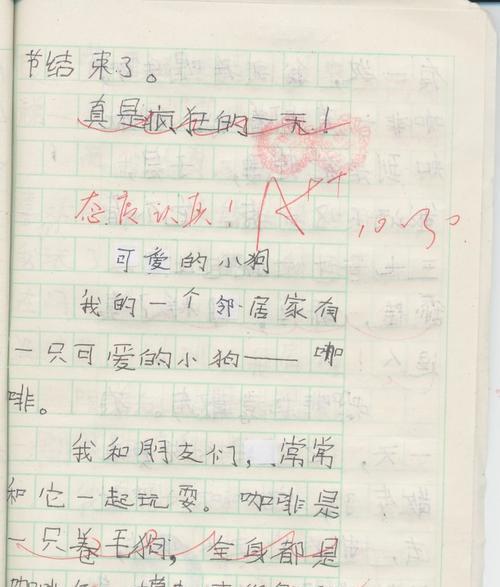 节结来了。
真是疯狂的一天！
态度认真！A++ 10.30
可爱的小狗
我的一个邻居家有
一只可爱的小狗——咖
啡。
我和朋友们，常常
和它一起玩耍。咖啡是
一只卷毛狗，全身都是